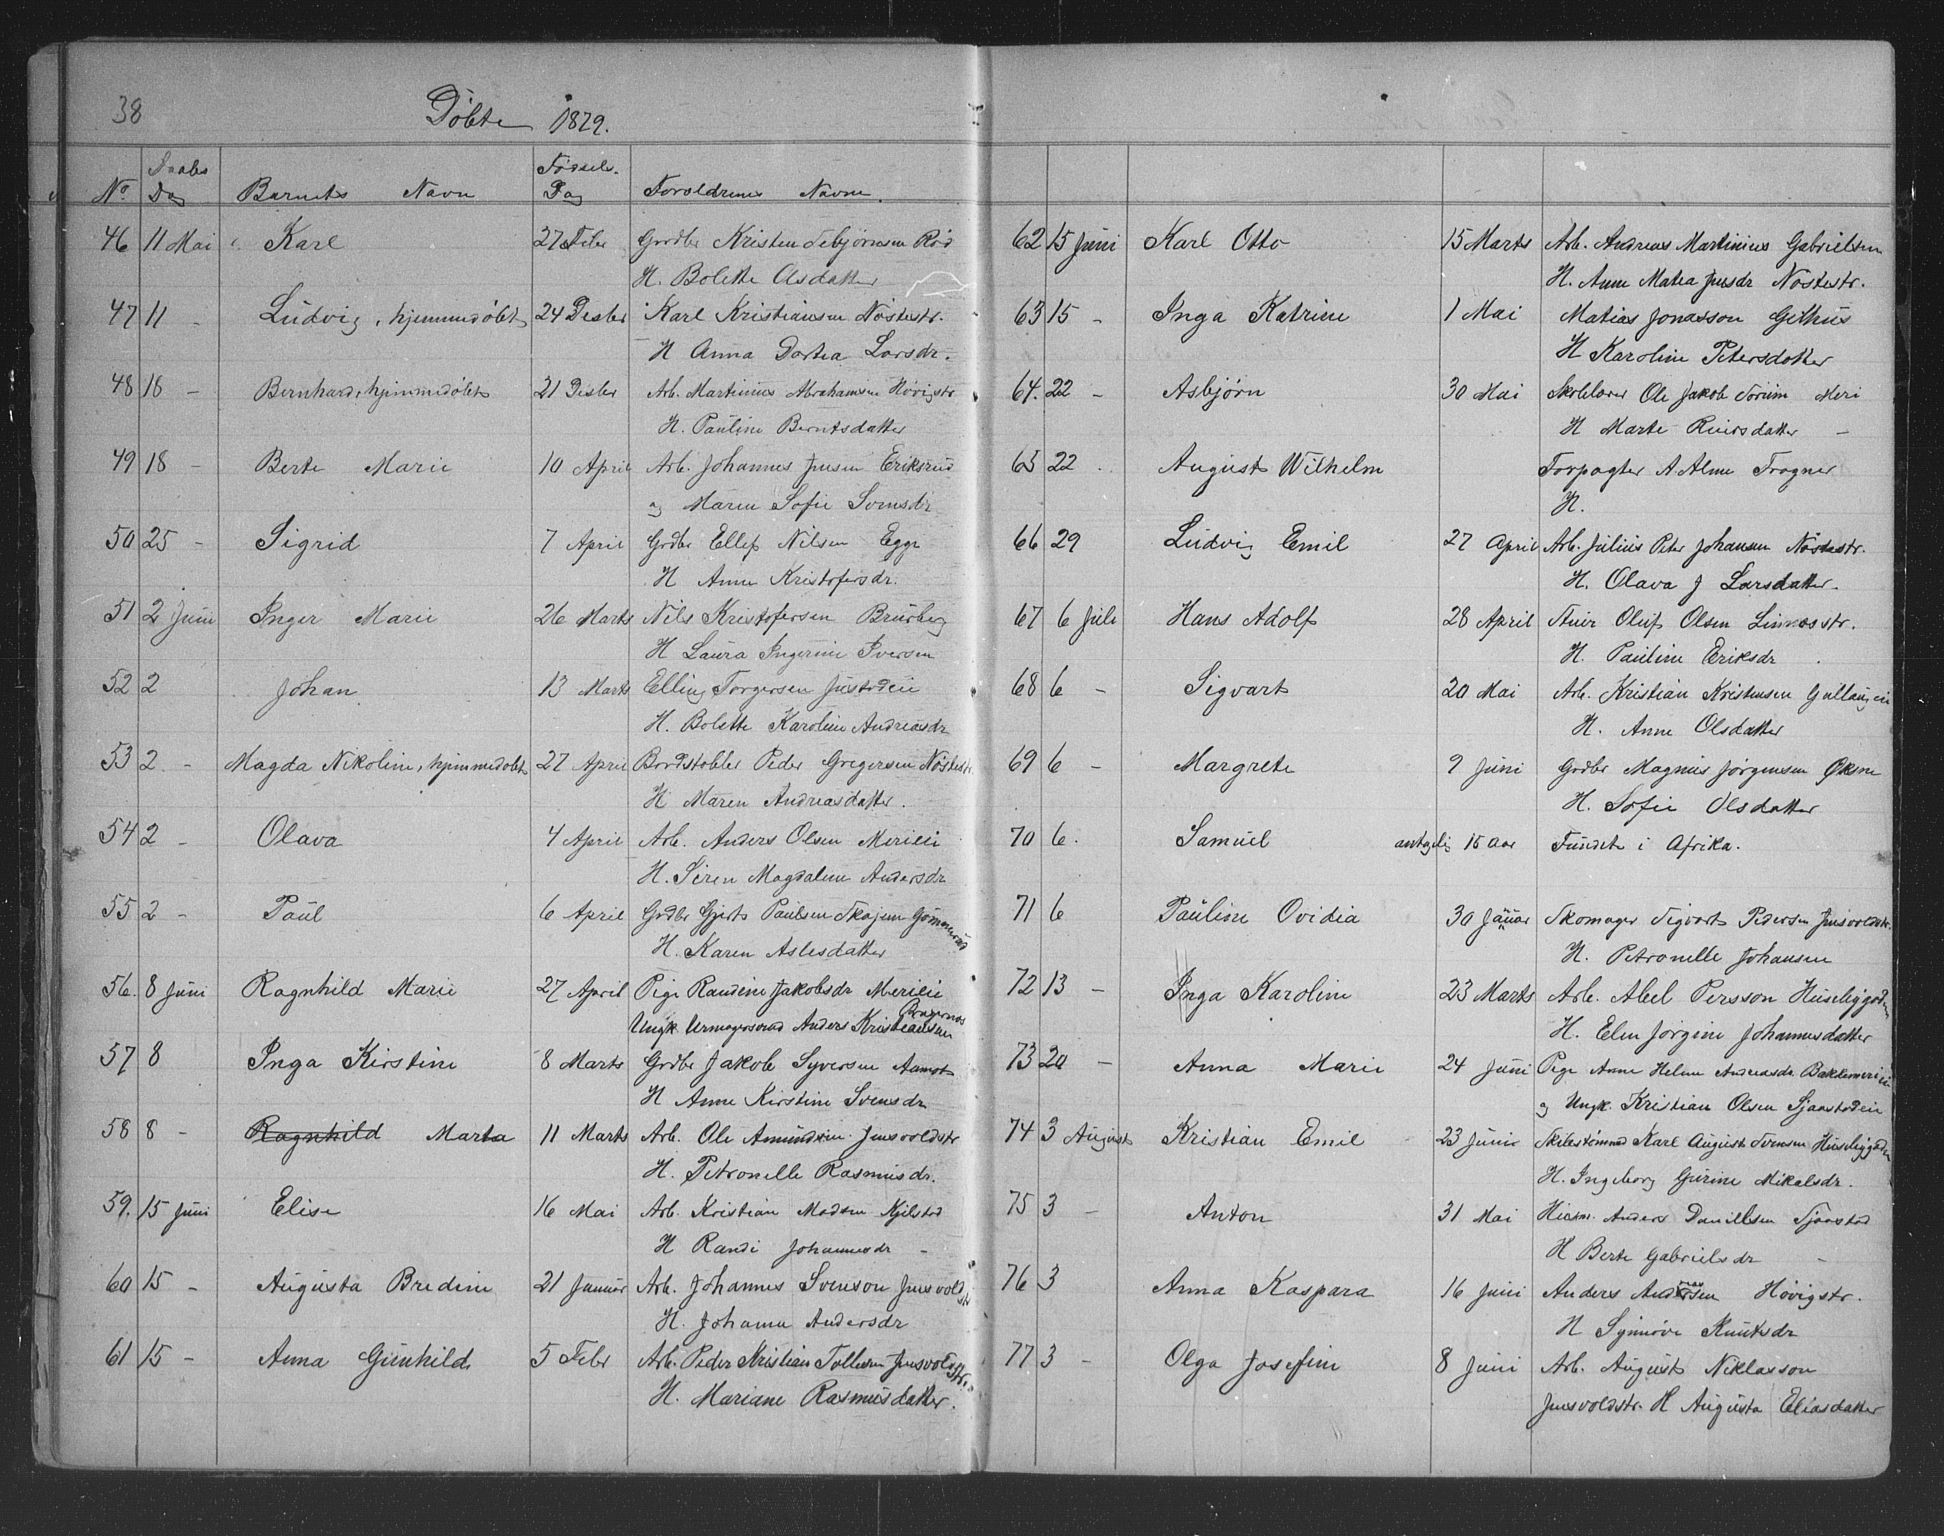 38
Døbte 1879.
No Daabs Dag Barnets Navn Fødsels. Dag Foreldrenes Navne.
46 11 Mai Karl 27 Febr Grdbr Kristen Rød
H. Bolette Olsdatter
47 11 - Ludvig, hjemmedøbt 24 Desbr Karl Kristiansen Nøstestr.
H Anna Dortea Larsdr.
48 18 - Bernhard, hjemmedøbt 21 Desbr Arb. Martinius Abrahamsen Høvigstr
H. Pauline Berntsdatter
49 18 - Berte Marie 10 April Arb. Johannes Jensen Eriksrud
og Maren Sofie Svensdr
50 25 - Sigrid 7 April Grdbr Ellef Nilsen Egge
H Anne Kristofersdr.
51 2 Juni Inger Marie 26 Marts Nils Kristofersen Bruberg
H Laura Ingerine Iversen
52 2 Johan 13 Marts Elling Torgersen
H. Bolette Karoline Andreasdr
53 2 - Magda Nikoline, hjemmedøbt 27 April Peder Gregersen Nøstestr.
H Maren Andreasdatter.
54 2 - Olava 4 April Arb. Anders Olsen Meriei
H. Siren Magdalene Andersdr
55 2 - Paul 6 April Grdbr Gjert Paulsen
H. Karen Aslesdatter
56. 8 Juni Ragnhild Marie 27 April Pige Randine Jakobsdr Meriei
Ungk. Urmagersvend Anders Kristiansen Bragernæs
57 8 Inga Kirstine 8 Marts Grdbr Jakob Syversen Aamot
H Anne Kirstine Svensdr
58 8 - Ragnhild Marta 11 Marts Arb. Ole Amundsen Jensvoldstr
H. Petronelle Rasmusdr.
59. 15 Juni Elise 16 Mai Arb. Kristian Madsen Kjilstad
H Randi Johannesdr -
60 15 - Augusta Bredine 21 Januar Arb. Johannes Svenson Jensvoldstr
H. Johanne Andersdr
61 15 - Anna Gunhild 5 Febr Arb. Peder Kristian Tollesen Jensvoldstr.
H. Mariane Rasmusdatter.
62 15 Juni Karl Otto 15 Marts Arb. Andreas Martinius Gabrielsen
H. Anne Matea Jensdr Nøstestr.
63 15 - Inga Katrine 1 Mai Matias Jonasson Gethus
H Karoline Petersdatter
64. 22 - Asbjørn 30 Mai Skolelærer Ole Jakob Sørum Meri
H Marte Reiersdatter -
65 22 . August Wilhelm Forpagter A. Alme Frogner
H.
66 29 Ludvig Emil 27 April Arb. Julius Peter Johansen Nøstestr.
H. Olava J Larsdatter.
67 6 Juli Hans Adolf 28 April Oluf Olsen Linnesstr.
H. Pauline Eriksdr .
68 6 - Sigvart 20 Mai Arb. Kristian Kristensen
H. Anne Olsdatter
69 6 - Margrete 9 Juni Grdbr Magnus Jørgensen Øksne
H. Sofie Olsdatter
70 6. Samuel antagelig 15 Aar Fundet i Afrika.
71 6 Pauline Ovidia 30 Januar Skomager Sigvart Pedersen Jensvoldstr.
H. Petronelle Johansen
72 13 - Inga Karoline 23 Marts Arb. Abel Persson Husebygaden
H. Elen Jørgine Johannesdatter
73 20 - Anna Marie 24 Juni Pige Anne Helene Andreasdr. Bakkemeriei
og Ungk. Kristian Olsen Sjaastadeie
74 3 August Kristian Emil 23 Juni Karl August Svensen Husebygaden
H. Ingeborg Gurine Mikalsdr.
75 3 - Anton 31 Mai Anders Danielsen Sjaastad
H Berte Gabrielsdr -
76 3 Anna Kaspara 16 Juni Anders Andersen Høvigstr.
H Synnøve Knutsdr
77 3 - Olga Josefine 8 Juni Arb. August Niklasson
Jensvoldstr. H Augusta Eliasdatter